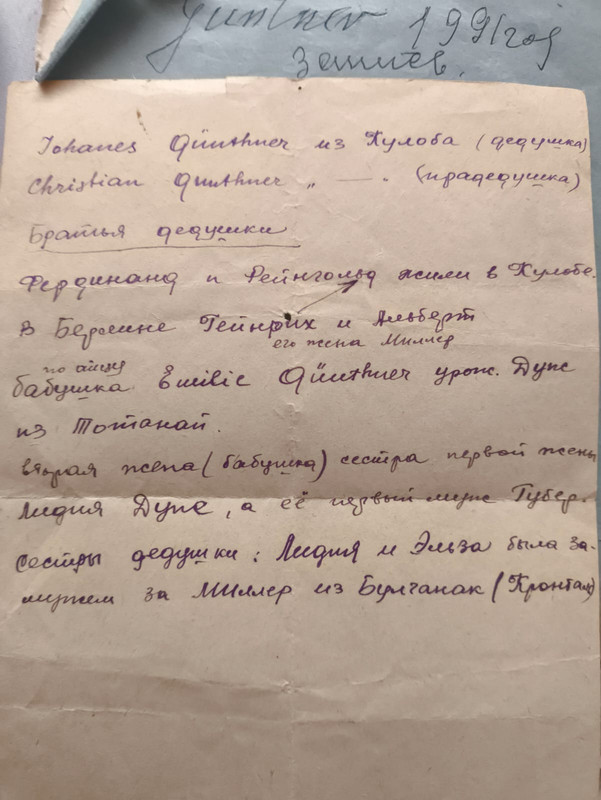 Günthner 1991 год
Johanes Günthner из Кулоба (дедушка)
Christian Günthner „ — „ (прадедушка)
Братья дедушки
Фердинанд и Рейнгольд жили в Кулобе.
В Берлине Гейнрих и Альберт
его жена Миллер
по отцу
бабушка Emilie Günthner урож. Дупс
из Тотанай.
вторая жена (бабушка) сестра первой жены
Лидия Дупс, а её первый муж Губер.
Сестры дедушки: Лидия и Эльза была за-
мужем за Миллер из Булганак (Кронталь)